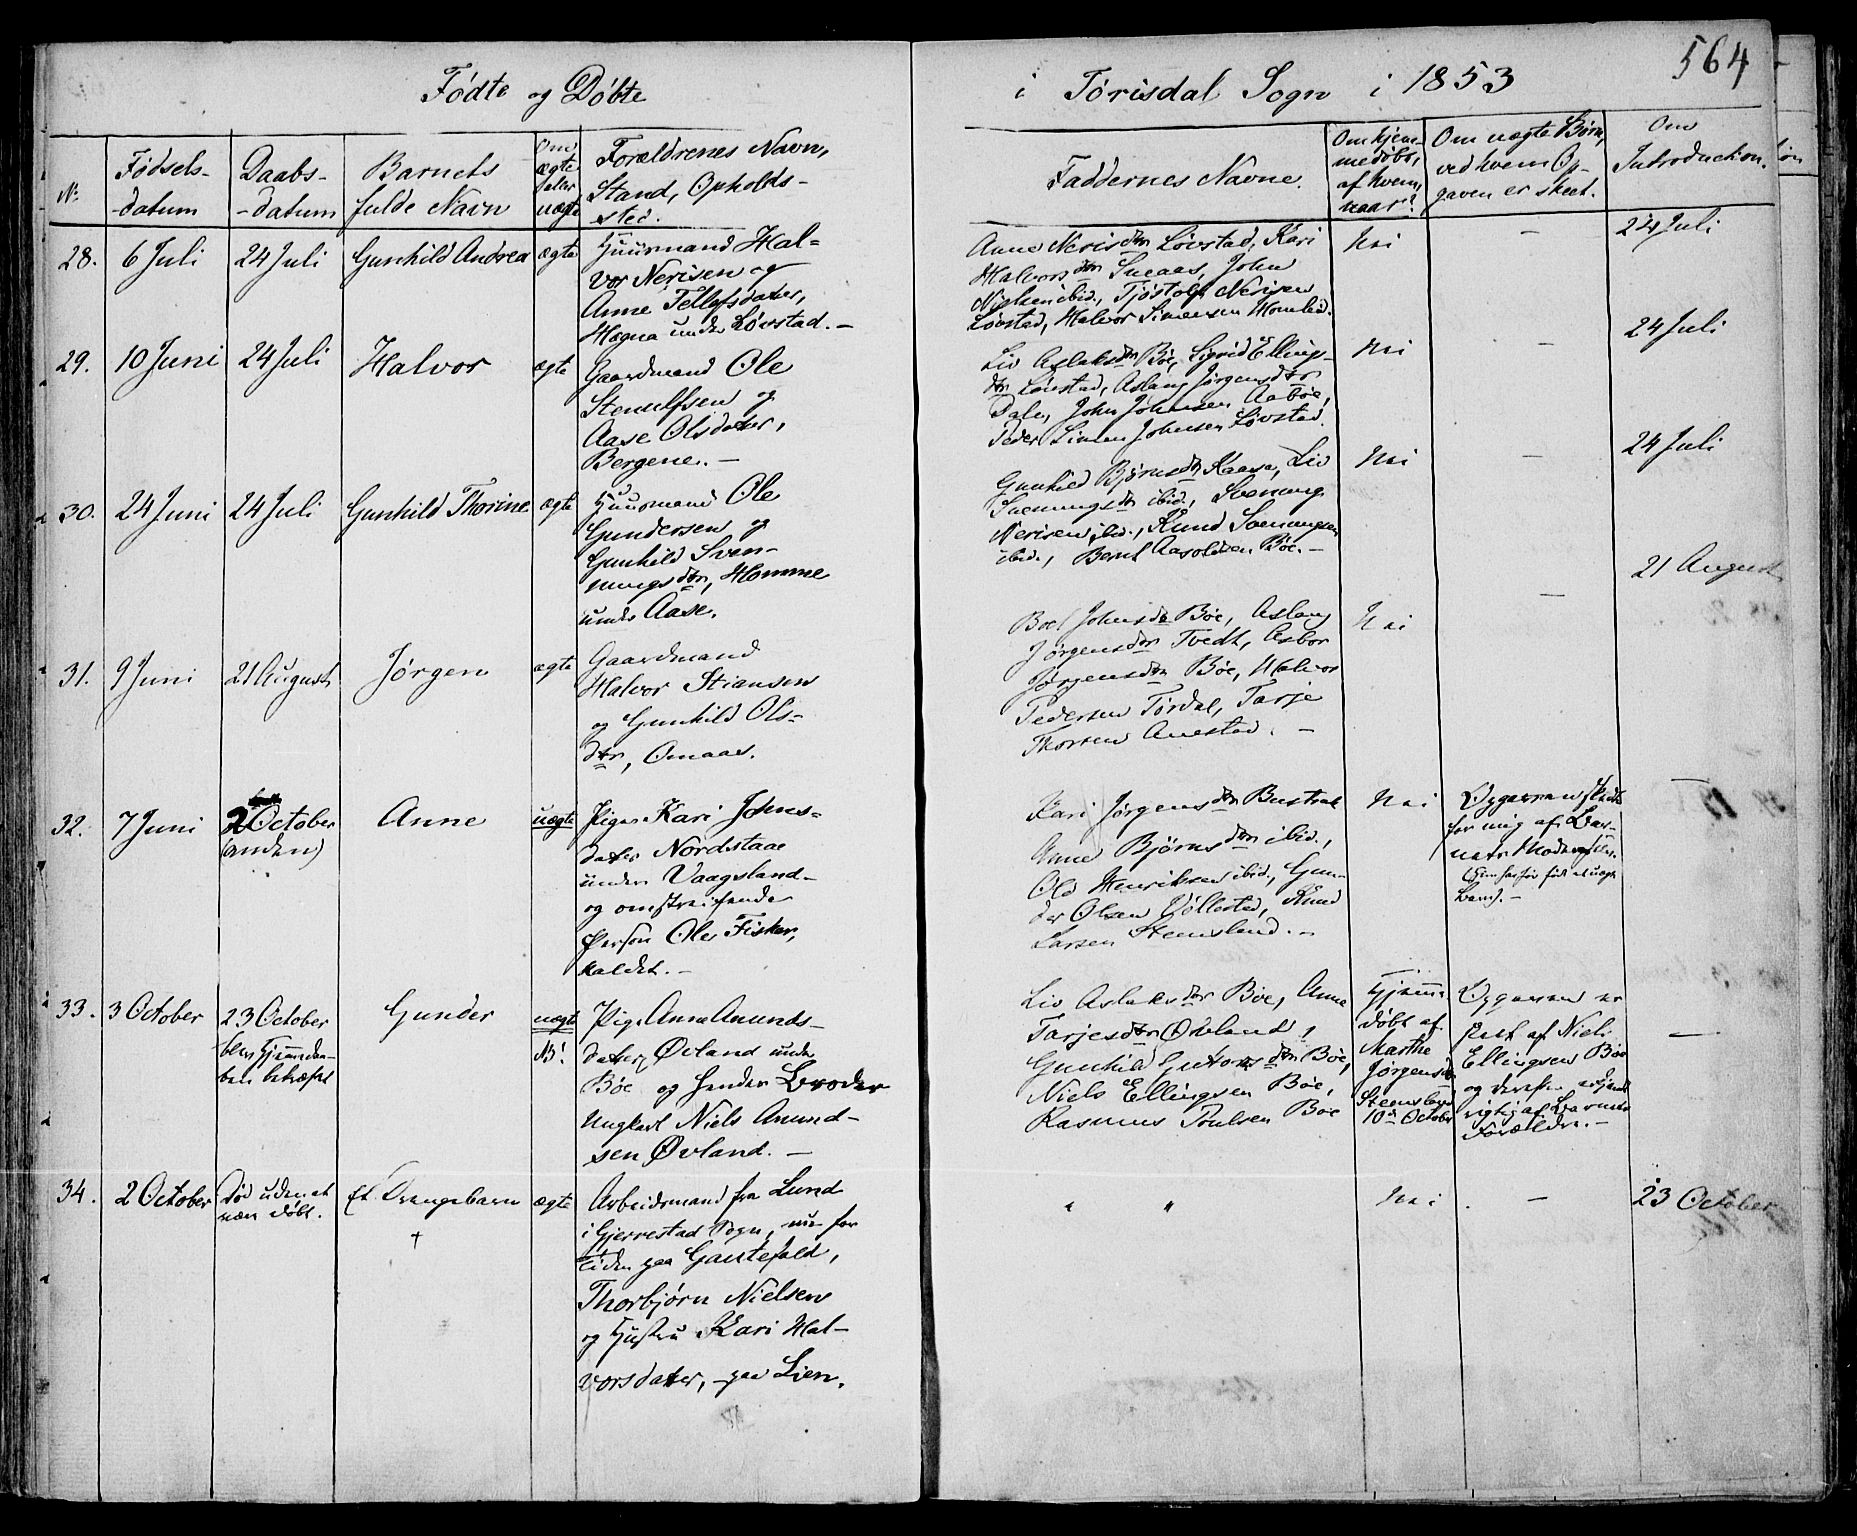 564
Fødte og Døbte
i Tørisdal Sogn i 1853
No
Fødsels-
datum
Daabs-
datum
Barnets
fulde Navn
Om
ægte
eller
uægte
Forældrenes Navn,
Stand, Opholds-
sted.
Faddernes Navne.
Om hjem-
medøbt,
af hvem,
naar?
Om uægte Børn,
ved hvem Op-
gaven er skeet.
Om
Introduction.
28.
6 Juli
24 Juli
Gunhild Andrea
ægte
Huusmand Hal-
vor Nerisen og
Anne Tellefsdater,
Høgna under Løvstad. -
Anne Nerisdtr Løvstad, Kari
Halvorsdtr Sneaas, John
Nielsen ibid., Tjøstolf Nerisen
Løvstad, Halvor Simensen
Nei
-
24 Juli
29.
10 Juni
24 Juli
Halvor
ægte
Gaardmand Ole
Stenulfsen og
Aase Olsdater,
Bergene. -
Liv Aslaksdtr Bøe, Sigrid Ellings-
dtr Løvstad, Aslaug Jørgensdtr
Dale, John Johnsen Aabøe,
Peder Simen Johnsen Løvstad.
Nei
-
24 Juli
30.
24 Juni
24 Juli
Gunhild Thorine
ægte
Huusmand Ole
Gundersen og
Gunhild Sven-
nungsdtr, Homme
under Aase.
Gunhild Bjørnsdtr Kaasa, Liv
Svenungsdtr ibid., Svenung
Nerisen ibid., Knud Svenungsen
ibid., Bernt Aasoldsen Bøe. -
Nei
-
24 Juli
31.
9 Juni
21 August
Jørgen
ægte
Gaardmand
Halvor Stiansen
og Gunhild Ols-
dtr, Omaas.
Boel Johnsdtr Bøe, Aslaug
Jørgensdtr Tvedt, Asbor
Jørgensdtr Bøe, Halvor
Pedersen Tørdal, Tarje
Thorsen Anestad. -
Nei
-
21 August
32.
7 Juni
2 October
(anden)
Anne
uægte
Pige Kari Johns-
dater Nordstaae
under Vaagsland -
og omstreifende
Person Ole Fisker,
kaldet. -
Kari Jørgensdtr Bustrak
Anne Bjørnsdtr ibid.,
Ole Henriksen ibid., Gun-
der Olsen Vøllestad, Knud
Larsen Stemsland. -
Nei
Opgaven skeet
for mig af Bar-
nets Moder
(som har før født et uægte
Barn). -
-
33.
3 October
23 October
blev Hjemmedaa-
ben bekræftet
Gunder
uægte
NB!
Pige Anne Anunds-
dater, Øvland under
Bøe og hendes Broder
Ungkarl Niels Anund-
sen Øvland. -
Liv Aslaksdtr Bøe, Anne
Tarjesdtr Øvland,
Gunhild Guttormsdtr Bøe,
Niels Ellingsen Bøe,
Rasmus Poulsen Bøe
Hjemme-
døbt af
Marthe
Jørgensdtr
Stemsland
10de October
Opgaven er
skeet af Niels
Ellingsen Bøe
og derefter erkjendt
rigtig af Barnets
Forældre. -
-
34.
2 October
Død uden at
være døbt.
Et Drengebarn
†
ægte
Arbeidsmand fra Lund
i Gjerrestad Sogn, nu for
Tiden paa Gautefald,
Thorbjørn Nielsen
og Hustru Kari Hal-
vorsdater, paa Lien.
" "
Nei
-
23 October